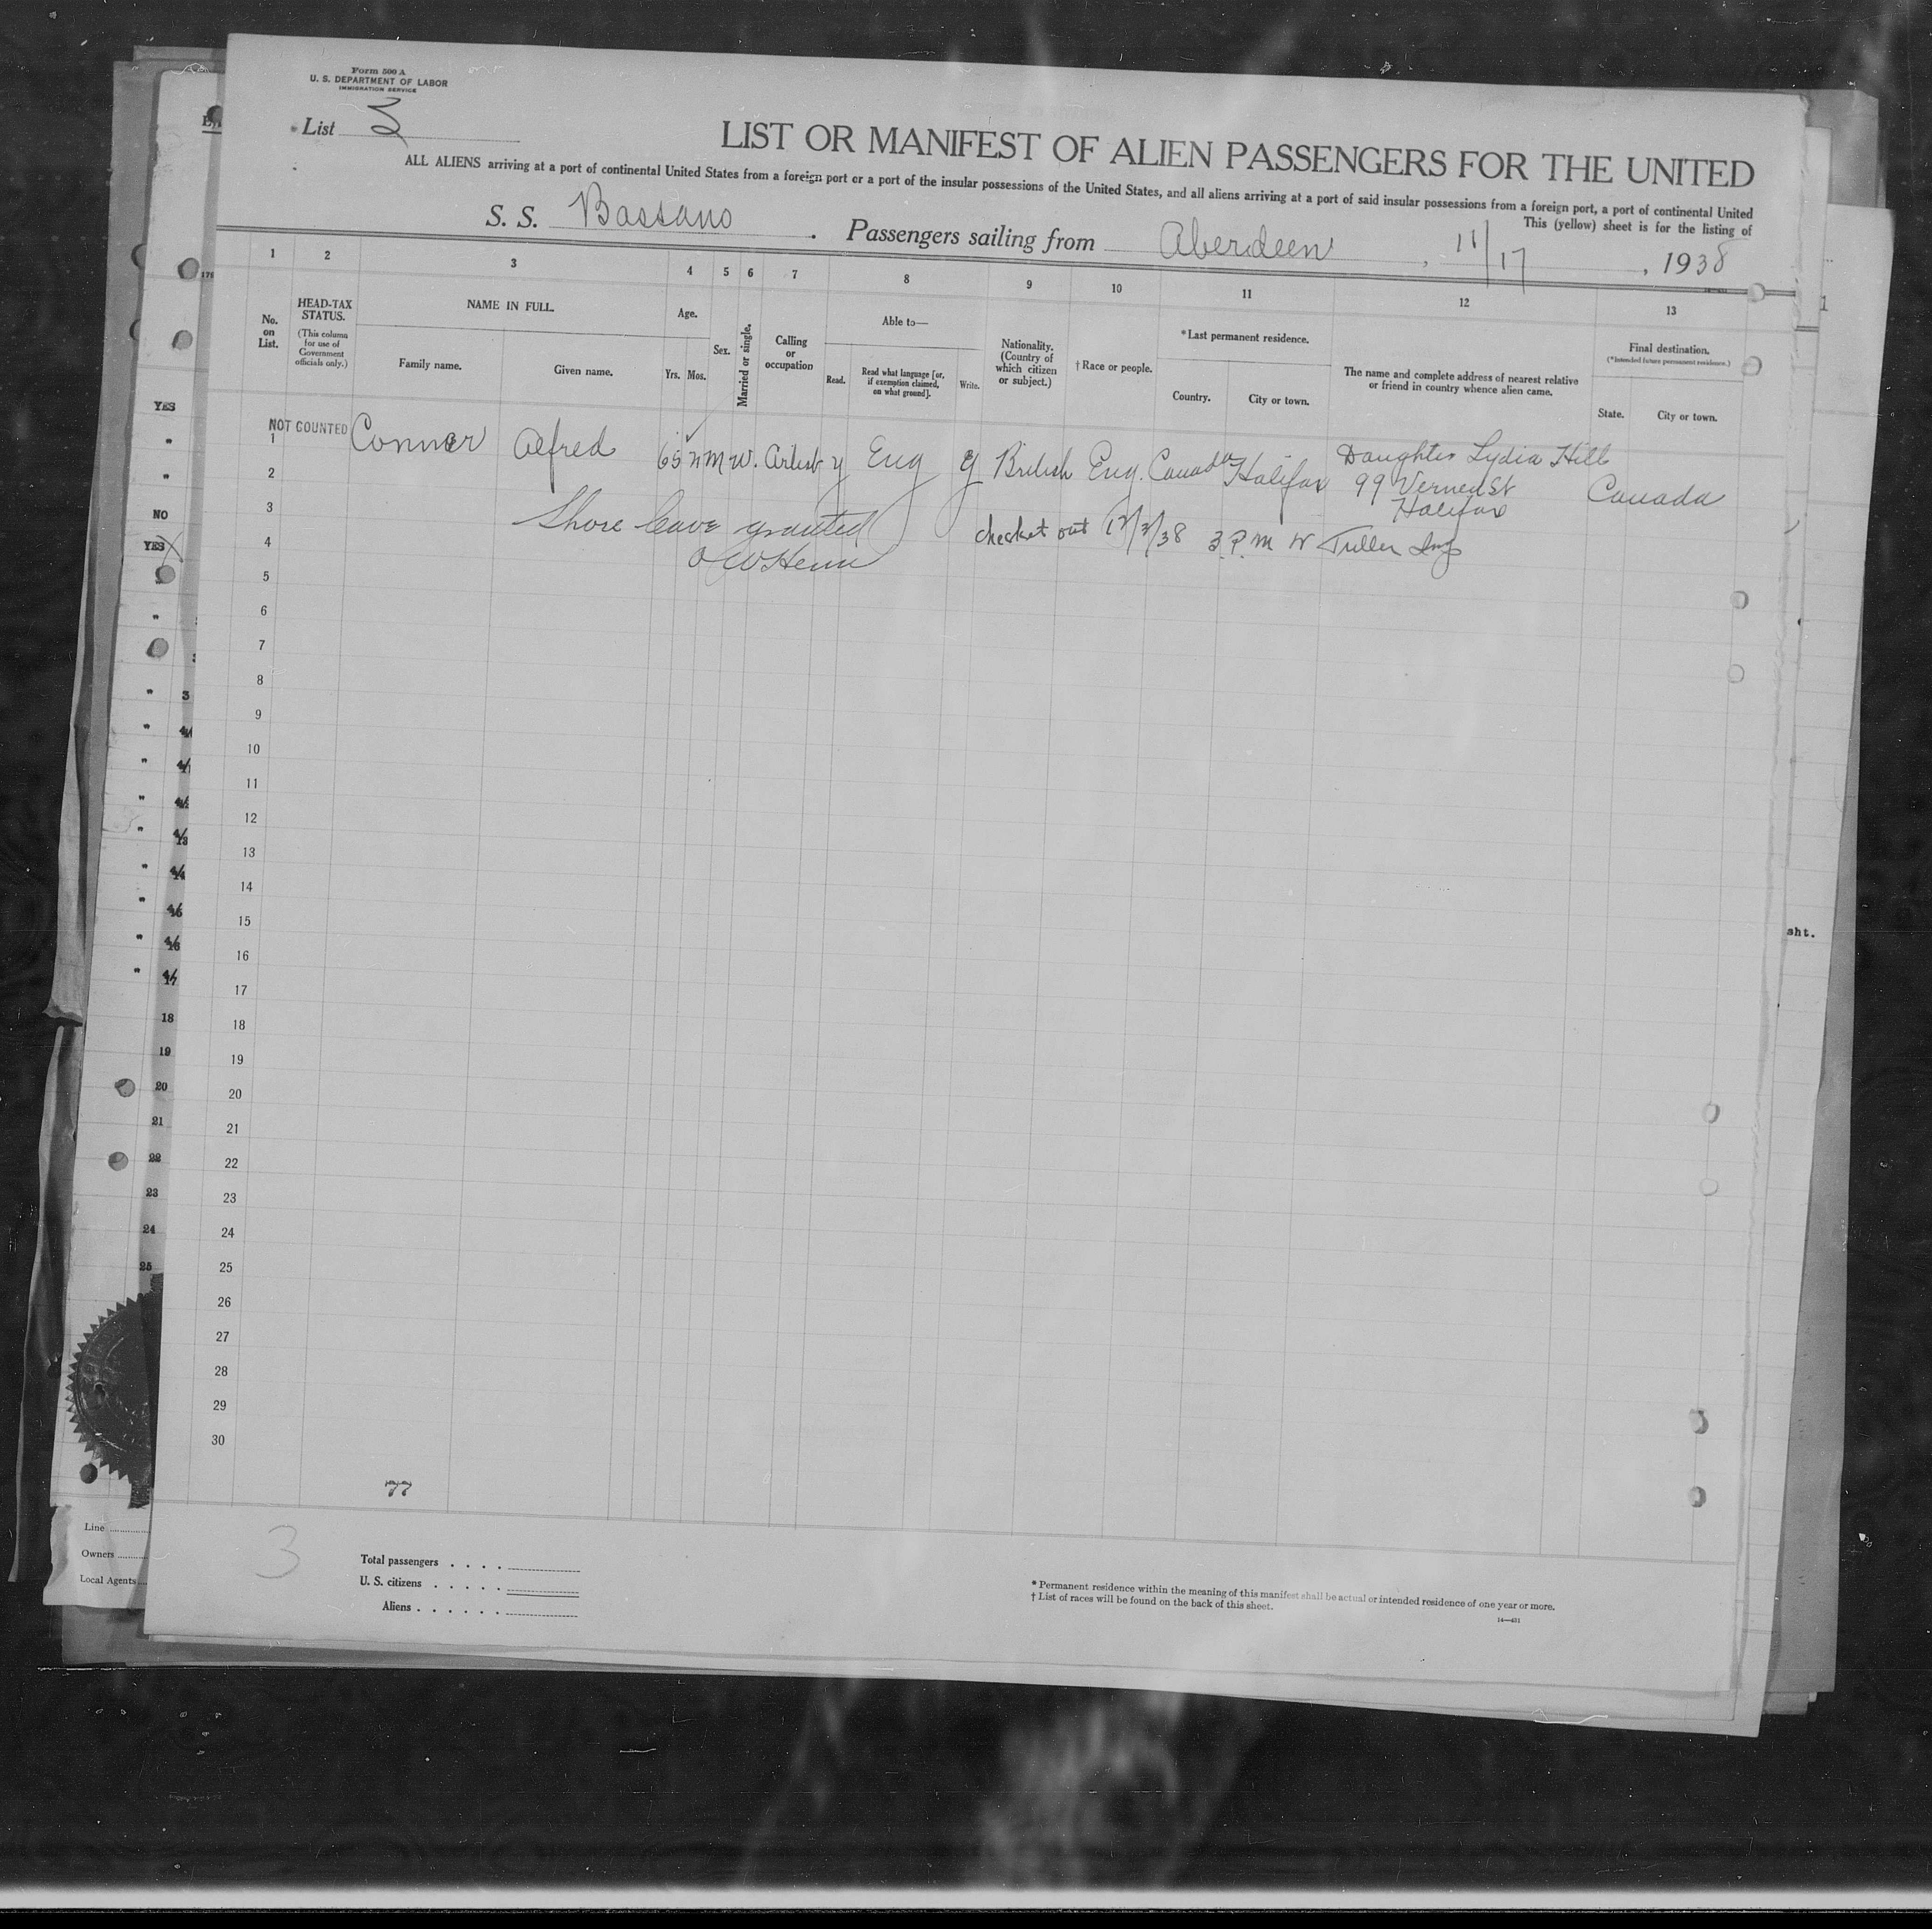 Form 500 A
U. S. DEPARTMENT OF LABOR
IMMIGRATION SERVICE
List 3
LIST OR MANIFEST OF ALIEN PASSENGERS FOR THE UNITED
ALL ALIENS arriving at a port of continental United States from a foreign port or a port of the insular possessions of the United States, and all aliens arriving at a port of said insular possessions from a foreign port, a port of continental United
This (yellow) sheet is for the listing of
S. S. Bassano . Passengers sailing from Aberdeen , 11/17 , 1938
1 2 3 4 5 6 7 8 9 10 11 12 13
No. on List.
HEAD-TAX STATUS.
(This column for use of Government officials only.)
NAME IN FULL.
Family name.
Given name.
Age.
Yrs. Mos.
Sex.
Married or single.
Calling or occupation
Able to—
Read.
Read what language [or, if exemption claimed, on what ground].
Write.
Nationality. (Country of which citizen or subject.)
† Race or people.
*Last permanent residence.
Country.
City or town.
The name and complete address of nearest relative or friend in country whence alien came.
Final destination.
(*Intended future permanent residence.)
State.
City or town.
NOT COUNTED
1 Conner Alfred 65 M W. Artist y Eng y British Eng. Canada Halifax Daughter Lydia Hill
2 99 St Canada
Halifax
3 Shore leave granted
checket out 12/3/38 3 P.M W Tuller Insp
4
5
6
7
8
9
10
11
12
13
14
15
16
17
18
19
20
21
22
23
24
25
26
27
28
29
30
77
3
Total passengers . . . .
U. S. citizens . . . . .
Aliens . . . . . .
* Permanent residence within the meaning of this manifest shall be actual or intended residence of one year or more.
† List of races will be found on the back of this sheet.
14—431
YES
"
"
NO
YES
"
"
"
"
"
"
"
"
"
"
"
3
18
19
20
21
22
23
24
25
Line
Owners
Local Agents
1
sht.